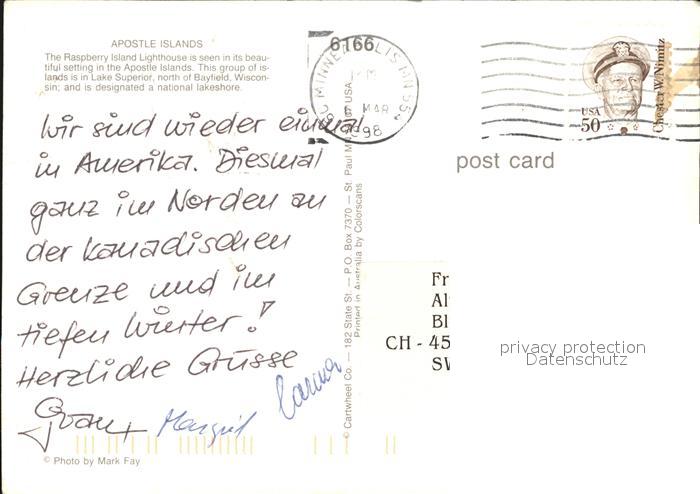 APOSTLE ISLANDS
The Raspberry Island Lighthouse is seen in its beau-
tiful setting in the Apostle Islands. This group of is-
lands is in Lake Superior, north of Bayfield, Wiscon-
sin; and is designated a national lakeshore.
Wir sind wieder einmal
in Amerika. Diesmal
ganz im Norden an
der kanadischen
Grenze und im
tiefen Winter!
Herzliche Grüsse
Margrit
© Photo by Mark Fay
© Cartwheel Co. — 182 State St. — P.O. Box 7370 — St. Paul
Printed in Australia by Colorscans
6166
MINNEAPOLIS MN 554
MAR
98
USA
50
Chester W. Nimitz
post card
Fr
Al
Bl
CH - 45
SW
privacy protection
Datenschutz